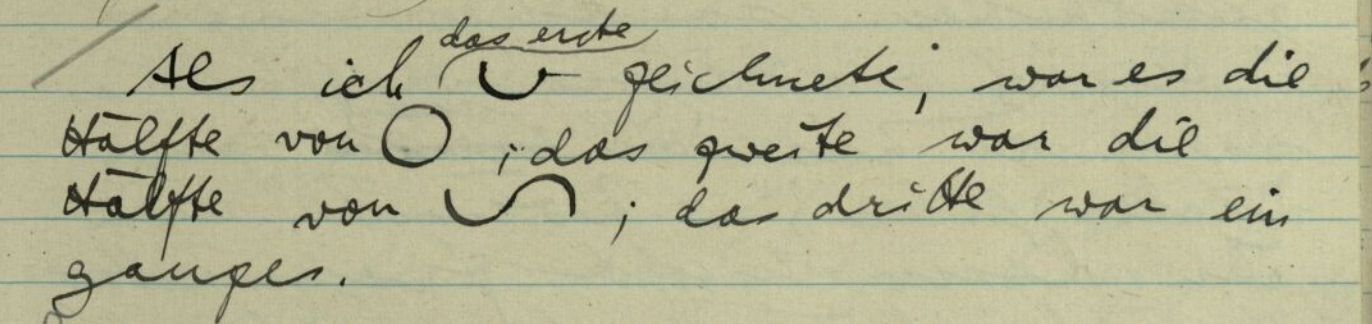 das erste
Als ich ◡ zeichnete, war es die
Hälfte von ◯; das zweite war die
Hälfte von ; das dritte war ein
ganzes.